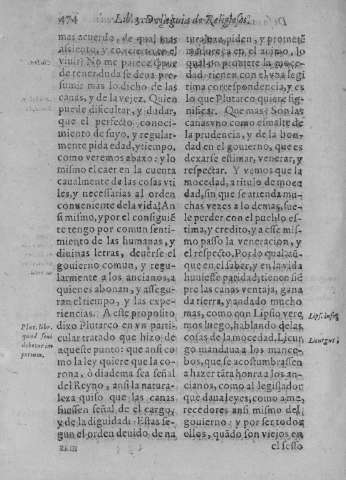 474 Lib. 3. De la guia de Religiosas.
mas acuerdo, de qual mas
assiento, y concierto en el vi-
uir? No me parece q̃ puede
de tener duda se deua pre-
sumir mas lo dicho de las
canas, y de la vejez. Quien
puede dificultar, y dudar,
que el perfecto conoci-
miento de suyo, y regular-
mente pida edad, y tiempo,
como veremos abaxo: y lo
mismo el caer en la cuenta
caualmente de las cosas vti
les, y necessarias al orden
conueniente de la vida? An
si mismo, y por el consiguiẽ
te tengo por comun senti-
miento de las humanas, y
diuinas letras, deuerse el
gouierno comun, y regu-
larmente a los ancianos, a
quienes abonan, y assegu-
ran el tiempo, y las expe-
riencias. A este proposito
dixo Plutarco en vn parti-
cular tratado que hizo de
aqueste punto: que ansi co
mo la ley quiere que la co-
rona, ò diadema sea señal
del Reyno, ansi la natura-
leza quiso que las canas
fuessen señal de el cargo,
y de la dignidad: Estas se-
gun el orden deuido de na
Plut. libr.
quod seni
tur
turaleza, piden, y prometẽ
madureza en el animo, lo
qual do prudente la moce-
dad: tienen con el vna legi
tima correspondencia, y es
lo que Plutarco quiere sig-
nificar. Que mas? Son las
canas vno como esmalte de
la prudencia, y de la bon-
dad en el gouierno, que es
dexarse estimar, venerar, y
respectar. Y vemos que la
mocedad, a titulo de moce
dad, sin que se atienda mu-
chas vezes a lo demas, sue-
le perder con el pueblo es-
tima, y credito, y a esse mis
mo passo la veneracion, y
el respecto. Por lo qual aũ-
que en el saber, y en la vida
huuiesse paridad, tienen siẽ
pre las canas ventaja, gana
da tierra, y andado mucho
mas, como con Lipsio vere
mos luego, hablando de las
cosas de la mocedad. Licur
go mandaua a los mance-
bos, que se acostumbrassen
a hazer tãta honra a los an-
cianos, como al legislador
que daua leyes, como a me
recedores ansi mismo del
gouierno: y por ser todos
ellos, quãdo son viejos en
el sesso
Lips. infra
Licurgus